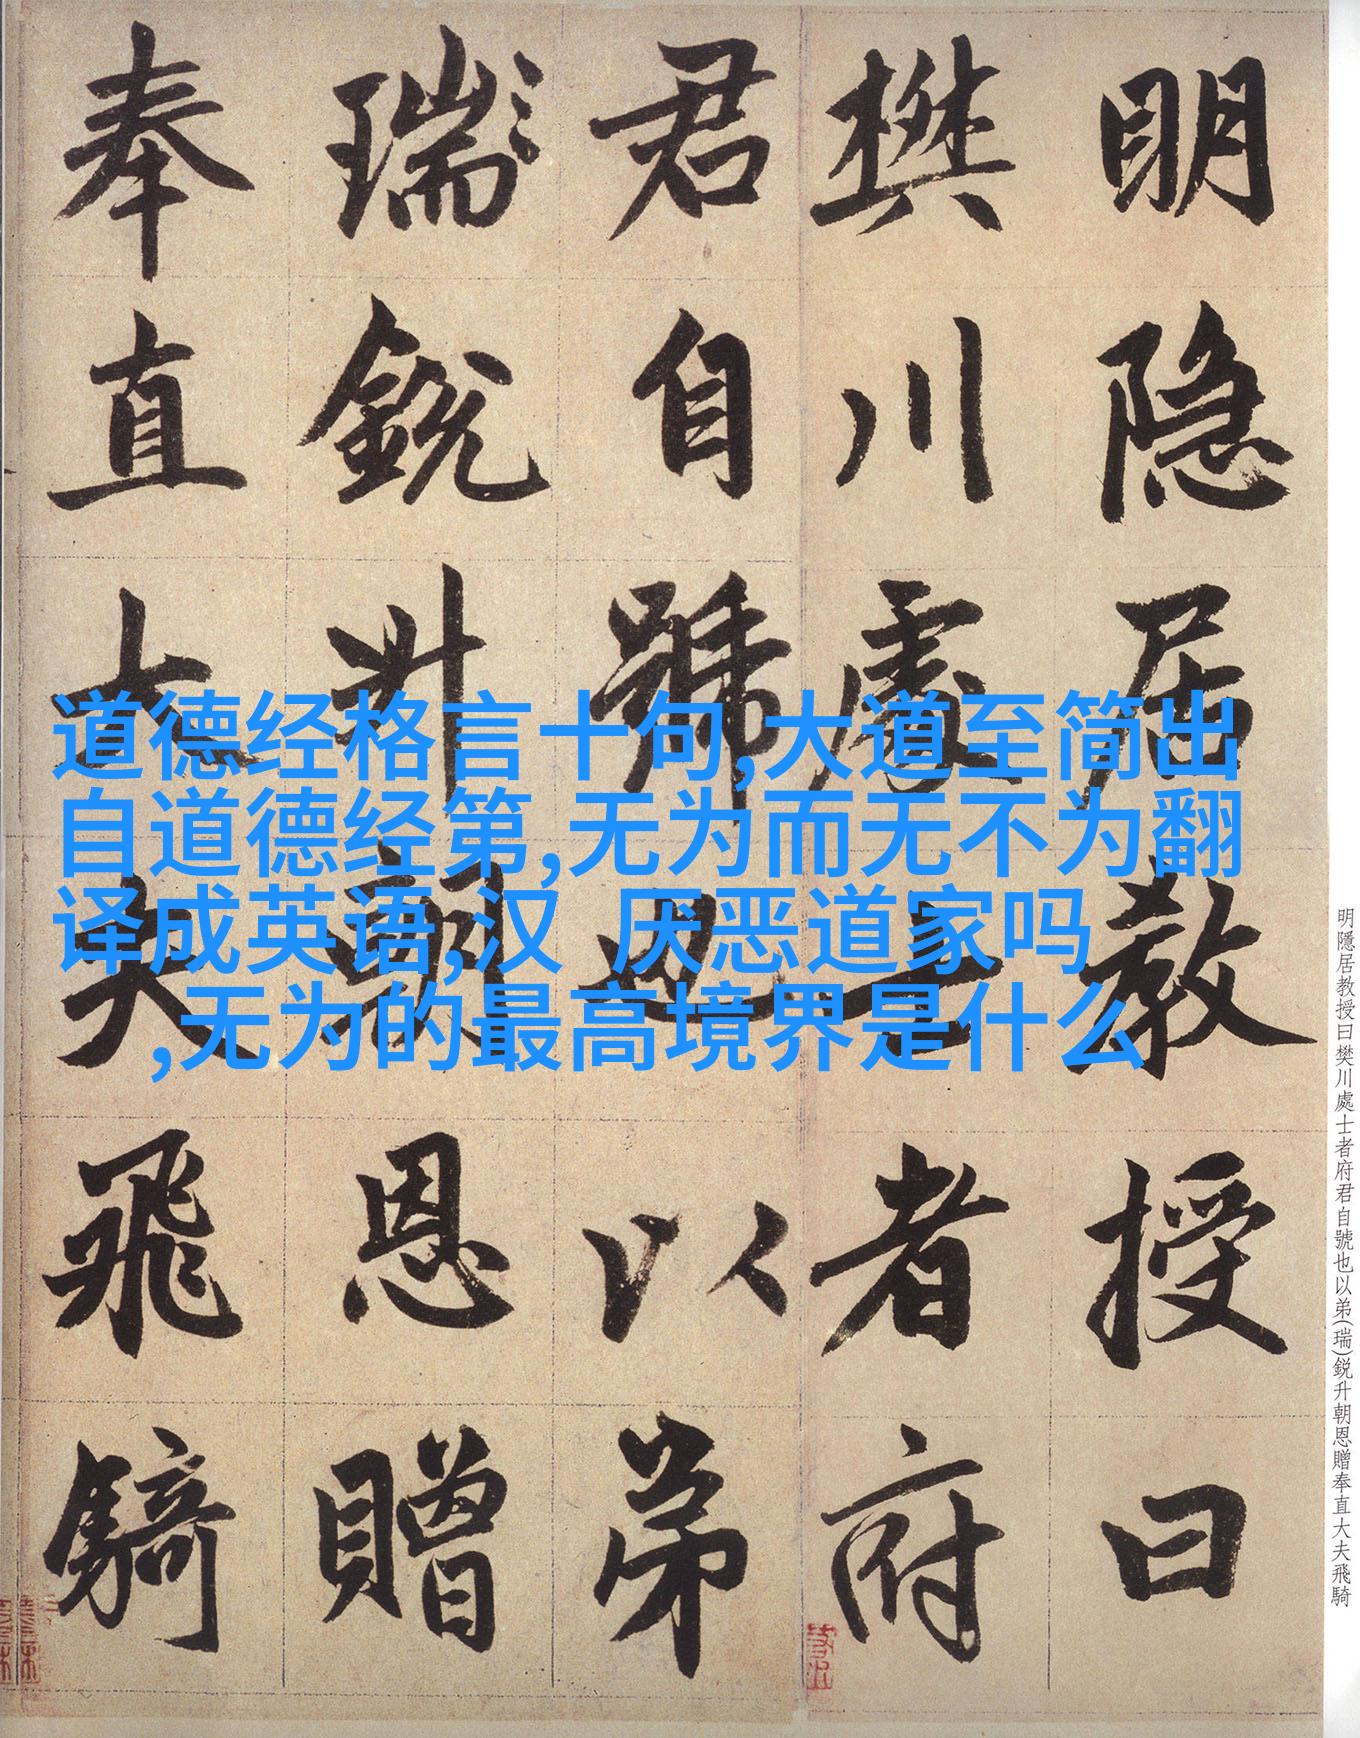 明隐居教授曰
樊川處士者府
君自號也以弟
瑞銳升朝恩贈
奉直大夫飛騎
道德经格言十句,大道至简出
自道德经第,无为而无不为翻
译成英语,汉 厌恶道家吗
,无为的最高境界是什么
明隱居教授曰樊川處士者府君自號也以弟(瑞)鋭升朝恩贈奉直大夫飛騎